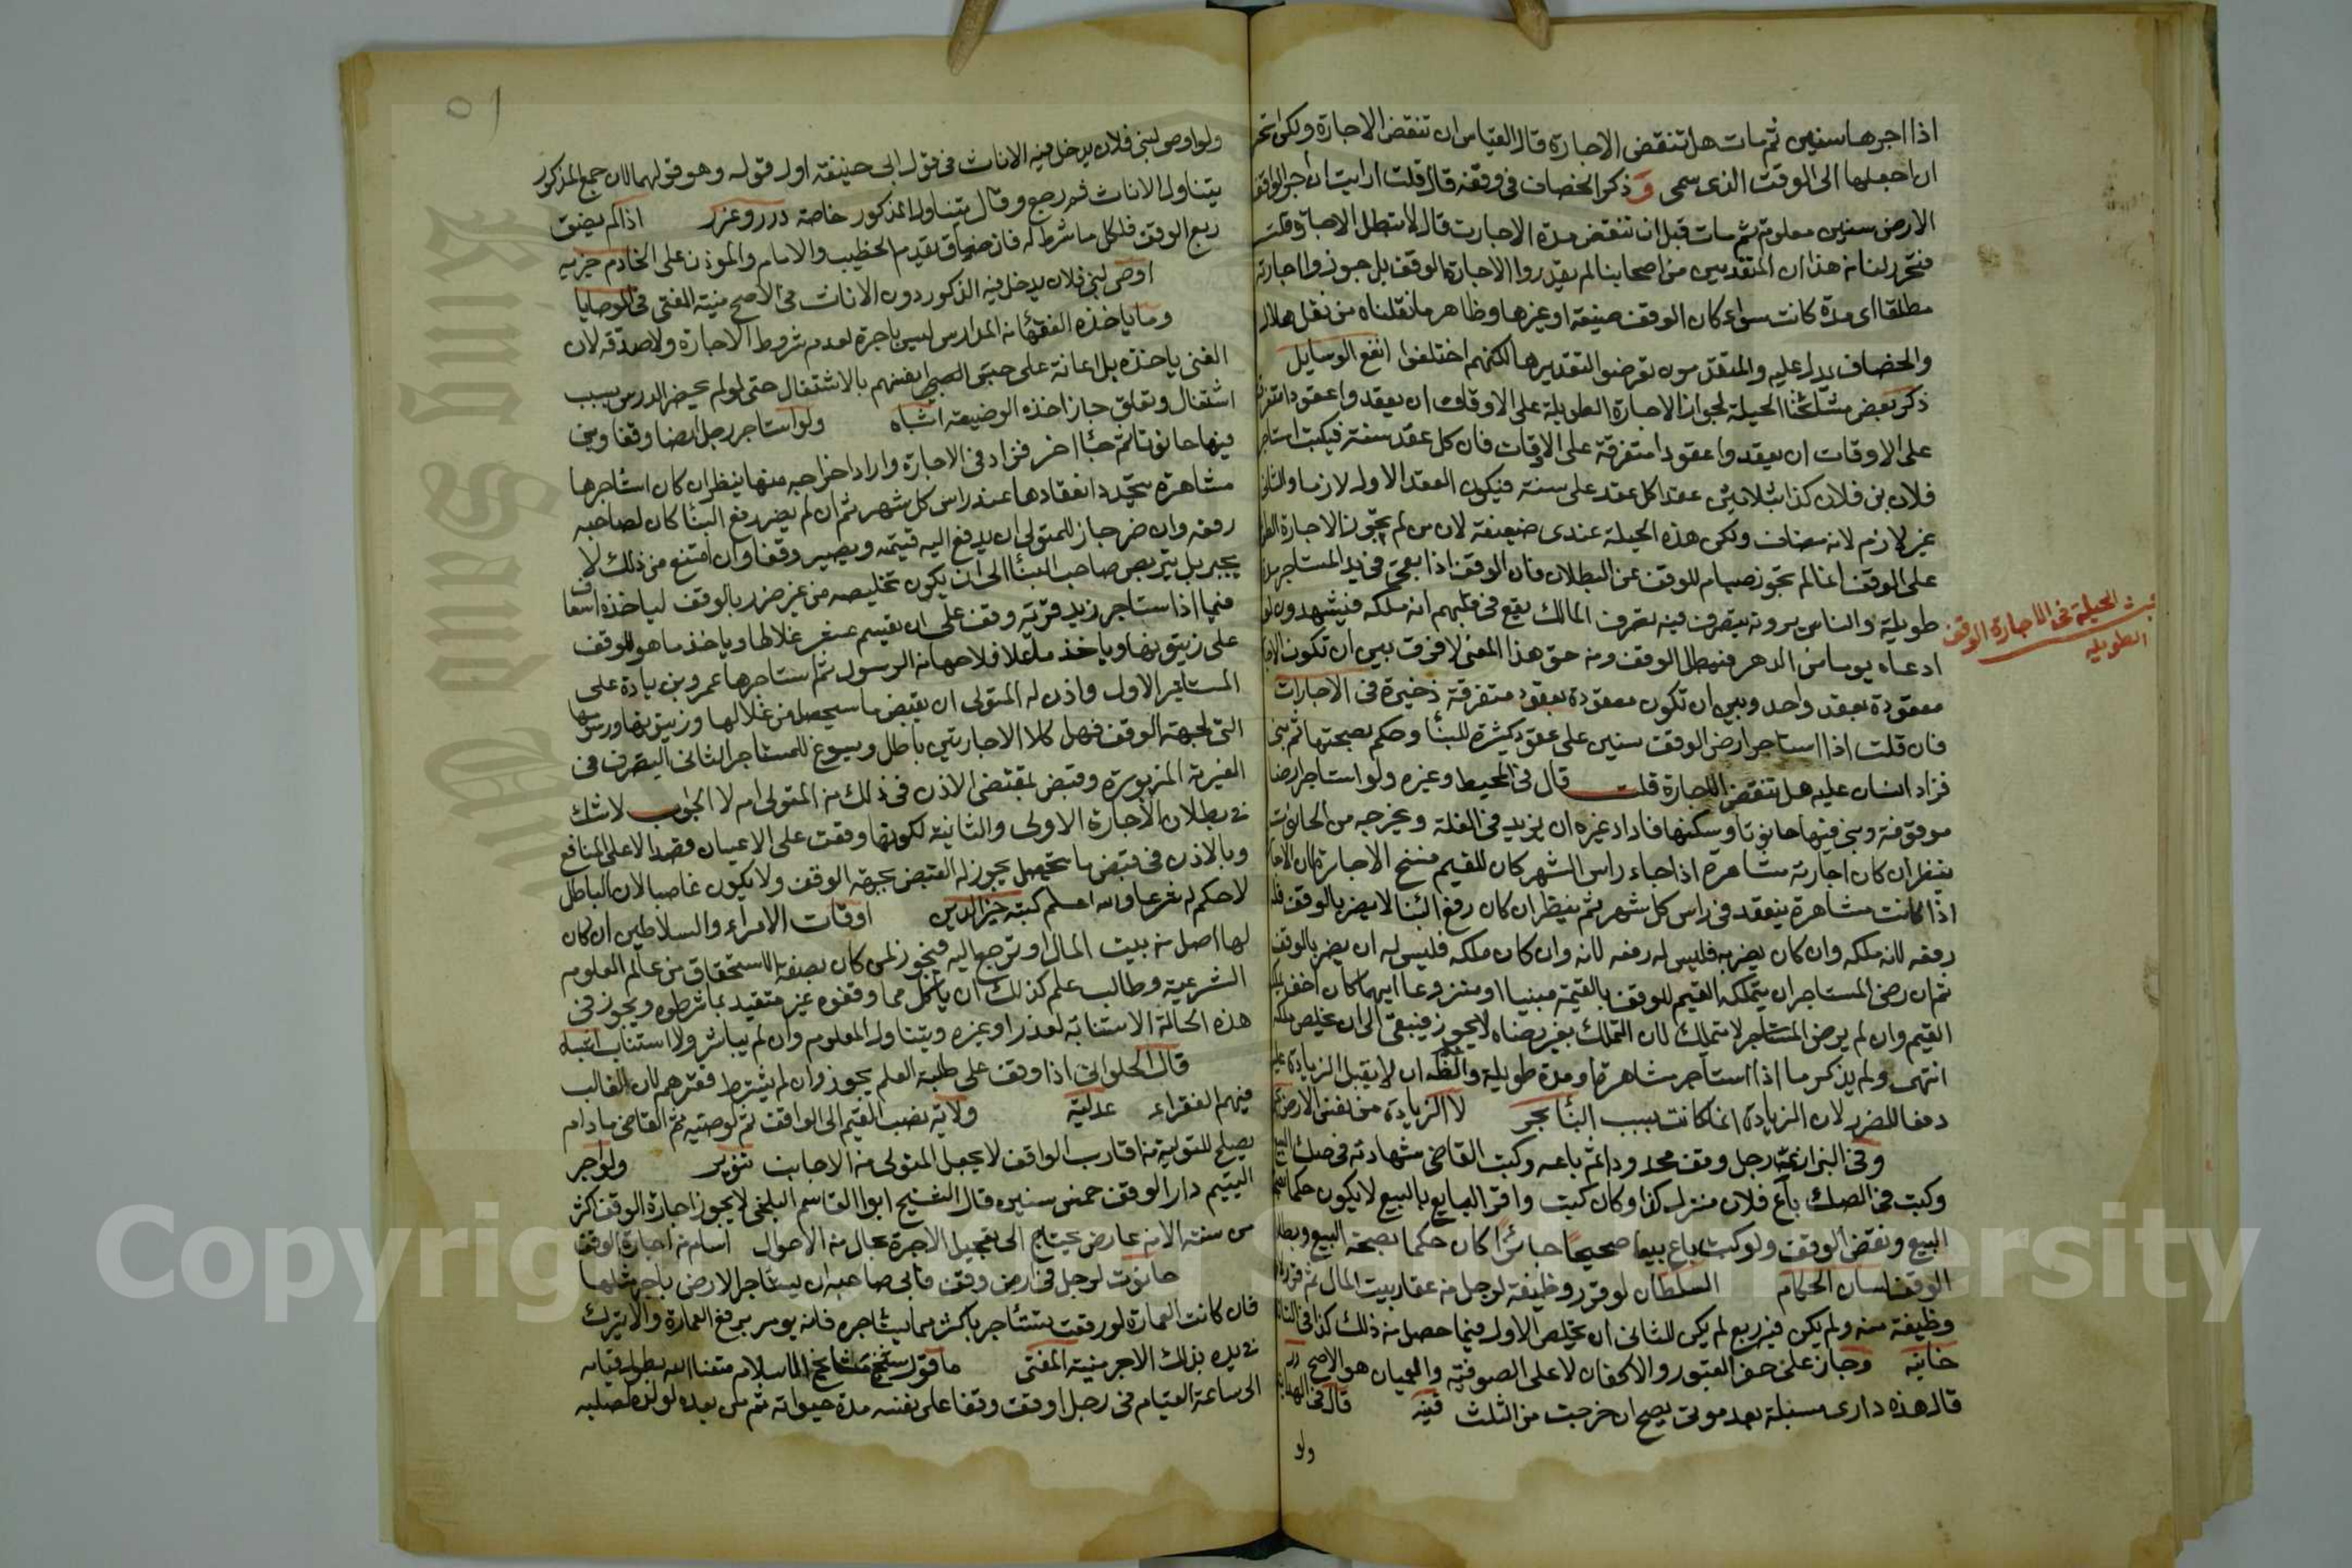 اذا اجرها سنين ثم مات هل تنقض الاجارة قال القياس ان تنقض الاجارة ولكن
ان اجعلها الى الوقت الذى سمى وذكر الخصاف فى وقفه قال قلت ارايت ان اجر الواقف
الارض سنين معلومة ثم مات قبل ان تنقض مدة الاجارت قال لا تبطل الاجارة قلت
فتحرر لنا من هذا ان المتقدمين من اصحابنا لم يقدروا الاجارة الوقف بل جوزوا اجارته
مطلقا اى مدة كانت سواء كان الوقف ضيعة او غيرها وظاهر ما نقلناه من نقل هلال
والخصاف يدل عليه والمتقدمون تعرضوا لتقديرها لكنهم اختلفوا انفع الوسايل
ذكر بعض مشايخنا الحيلة لجواز الاجارة الطويلة على الاوقاف ان يعقدوا عقودا متفرقة
على الاوقات ان يعقدوا عقودا متفرقة على الاوقات فان كل عقد سنة فيكتب استاجر
فلان بن فلان كذا بثلاثين عقدا كل عقد على سنة فيكون العقد الاول لازما والثانى
غير لازم لانه مضاف ولكن هذه الحيلة عندى ضعيفة لان من لم يجوز الاجارة الطويلة
على الوقف انما لم يجوز صيانة للوقف عن البطلان فان الوقف اذا بقى فى يد المستاجر مدة
طويلة والناس يرونه يتصرف فيه تصرف المالك يقع فى قلبهم انه ملكه فيشهدون لو
ادعاه يوما من الدهر فيبطل الوقف ومن حق هذا المعنى لا فرق بين ان تكون الاجارة
معقودة بعقد واحد وبين ان تكون معقودة بعقود متفرقة ذخيرة فى الاجارات
فان قلت اذا استاجر ارض الوقف سنين على عقود كثيرة للبناء وحكم بصحتها ثم بنى
فزاد انسان عليه هل تنقض الاجارة قلت قال فى المحيط وغيره ولو استاجر ارضا
موقوفة وبنى فيها حانوتا وسكنها فاراد غيره ان يزيد فى الغلة ويخرجه من الحانوت
ينظر ان كان اجارته مشاهرة اذا جاء راس الشهر كان للقيم فسخ الاجارة لان الاجارة
اذا كانت مشاهرة ينعقد فى راس كل شهر ثم ينظر ان كان رفع البنا لا يضر بالوقف فله
رفعه لانه ملكه وان كان يضر به فليس له رفعه لانه وان كان ملكه فليس له ان يضر بالوقف
ثم ان رضى المستاجر ان يتملكه القيم للوقف بالقيمة مبنيا او منزوعا ايهما كان اخف
القيم وان لم يرض المستاجر لا يتملك لان التملك بغير رضاه لا يجوز فيبقى الى ان يخلص ملكه
انتهى ولم يذكر ما اذا استاجر مشاهرة او مدة طويلة والظ انه لا يقبل الزيادة عليه
دفعا للضرر لان الزيادة انما كانت بسبب البنا بحر لا الزيادة من نفس الارض
وفى البزازية رجل وقف محدودا ثم باعه وكتب القاضى شهادته فى صك البيع
وكتب فى الصك باع فلان منزله كذا وكان كتب واقر البايع بالبيع لا يكون حكما
البيع ونقض الوقف ولو كتب باع بيعا صحيحا جائزا كان حكما بصحة البيع وبطل
الوقف لسان الحكام السلطان لو قرر وظيفة لرجل من عقار بيت المال ثم قرر
وظيفة منه ولم يكن فيه ريع لم يكن للثانى ان يخلص الاول فيما حصل من ذلك كذا فى
خانيه وجاز على حفر القبور والاكفان لا على الصوفية والعميان هو الاصح درر
قال هذه دارى مسبلة بعد موتى يصح ان خرجت من الثلث قنيه قال فى
ولو
فى الحيلة فى الاجارة الوقف
الطويله
٥١
ولو اوصى لبنى فلان يدخل فيه الاناث فى قول ابى حنيفة اول قوله وهو قولهما لان جمع المذكور
يتناول الاناث ثم رجع وقال يتناول المذكور خاصة درر وغرر اذا لم يضق
ريع الوقف فلكل ما شرط له فان ضاق يقدم الخطيب والامام والموذن على الخادم خيريه
اوصى لبنى فلان يدخل فيه الذكور دون الاناث فى الاصح منية المفتى فى الوصايا
وما ياخذه الفقهاء من المدارس ليس باجرة لعدم شروط الاجارة ولا صدقة لان
الغنى ياخذه بل اعانة على حبس انفسهم بالاشتغال حتى لو لم يحضر الدرس بسبب
اشتغال وتعلق جاز اخذه الوضيعه اشباه ولو استاجر رجل ارضا وقفا وبنى
فيها حانوتا ثم جاء اخر فزاد فى الاجارة واراد اخراجه منها ينظر ان كان استاجرها
مشاهرة يتجدد انعقادها عند راس كل شهر ثم ان لم يضر رفع البناء كان لصاحبه
رفعه وان ضر جاز للمتولى ان يدفع اليه قيمته ويصير وقفا وان امتنع من ذلك لا
يجبر بل يتربص صاحب البناء الى ان يكون تخليصه من غير ضرر بالوقف لياخذه اسعاف
فيما اذا استاجر زيد قرية وقف على ان يقسم عشر غلاطا وياخذ ما هو للوقف
على زيتونها وياخذ ما على فلاحها من الرسول ثم استاجرها عمرو بن زيادة على
المستاجر الاول واذن له المتولى ان يقبض ما سيحصل من غلالها وزيتونها ورسومها
التى لجهة الوقف فهل كلا الاجارتين باطل ويسوغ للمستاجر الثانى التصرف فى
القرية المزبورة وقبض بمقتضى الاذن فى ذلك من المتولى ام لا الجواب لا شك
فى بطلان الاجارة الاولى والثانية لكونها وقعت على الاعيان قصدا لا على المنافع
وبالاذن فى قبض ما يتحصل يجوز له القبض بجهة الوقف ولا يكون غاصبا لان الباطل
لا حكم له شرعا والله اعلم كتبه خير الدين اوقات الامراء والسلاطين ان كان
لها اصل من بيت المال او ترجع اليه فيجوز لمن كان بصفة الاستحقاق من عالم العلوم
الشرعية وطالب علم كذلك ان ياكل مما وقفوه غير متقيد بما شرطوه ويجوز فى
هذه الحالة الاستنابه لعذر او غيره ويتناول المعلوم وان لم يباشر ولا استناب اشباه
قال الحلوانى اذا وقف على طلبة العلم يجوز وان لم يشترط فقرهم لان الغالب
فيهم الفقراء عدليه ولاية نصب القيم الى الواقف ثم لوصيه ثم القاضى ما دام
يصلح للتولية من اقارب الواقف لا يجعل المتولى من الاجانب تنوير ولو اجر
اليتيم دار الوقف خمس سنين قال الشيخ ابوا القاسم البلخى لا يجوز اجارة الوقف اكثر
من سنة الا من عارض يحتاج الى تعجيل الاجرة بحال من الاحوال اسام من اجارة الوقف
حانوت لرجل فى ارض وقف فابى صاحبه ان يستاجر الارض باجر مثلها
فان كانت العمارة لو رفعت يستاجر باكثر مما يستاجره فانه يومر برفع العمارة والا يترك
فى يده بذلك الاجر منية المفتى ما قول شيخ مشايخ الاسلام متعنا الله بطول بقيامه
الى ساعة القيام فى رجل اوقف وقفا على نفسه مدة حيواته ثم من بعده لولده لصلبه
King Saud University
Copyright © King Saud University